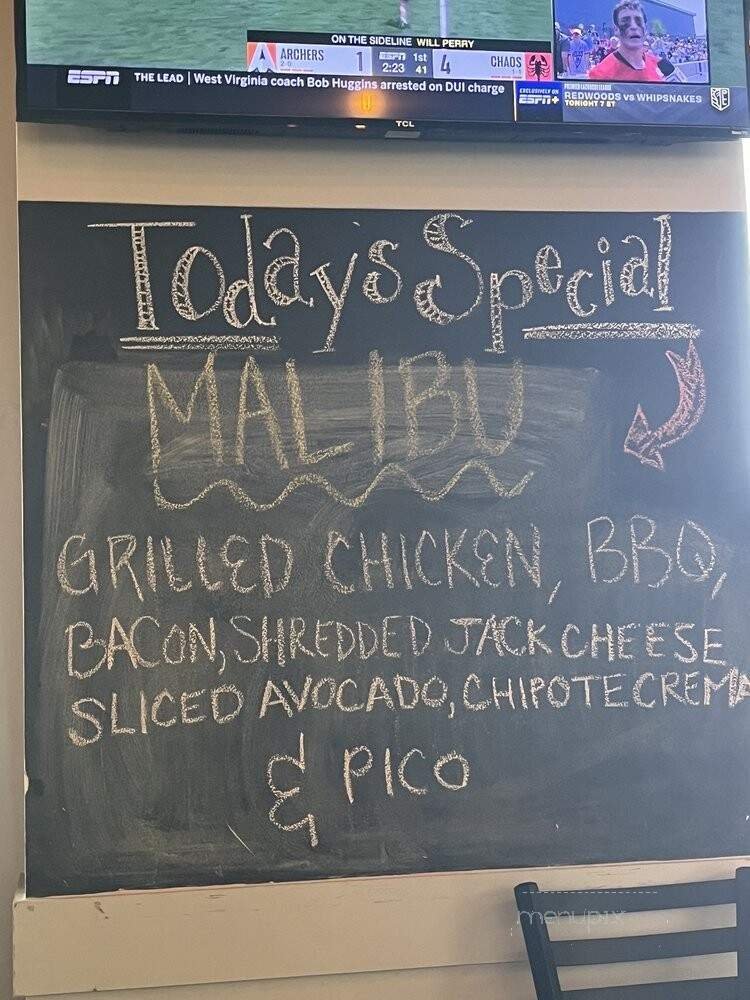 ON THE SIDELINE WILL PERRY
ARCHERS 2-0 1 ESPN 1st 2:23 41 4 CHAOS 1-1
ESPN THE LEAD | West Virginia coach Bob Huggins arrested on DUI charge
EXCLUSIVELY ON ESPN+ PREMIER LACROSSE LEAGUE
REDWOODS vs WHIPSNAKES
TONIGHT 7 ET
TCL
Today's Special
MALIBU
GRILLED CHICKEN, BBQ,
BACON, SHREDDED JACK CHEESE
SLICED AVOCADO, CHIPOTE CREMA
& PICO
menupix